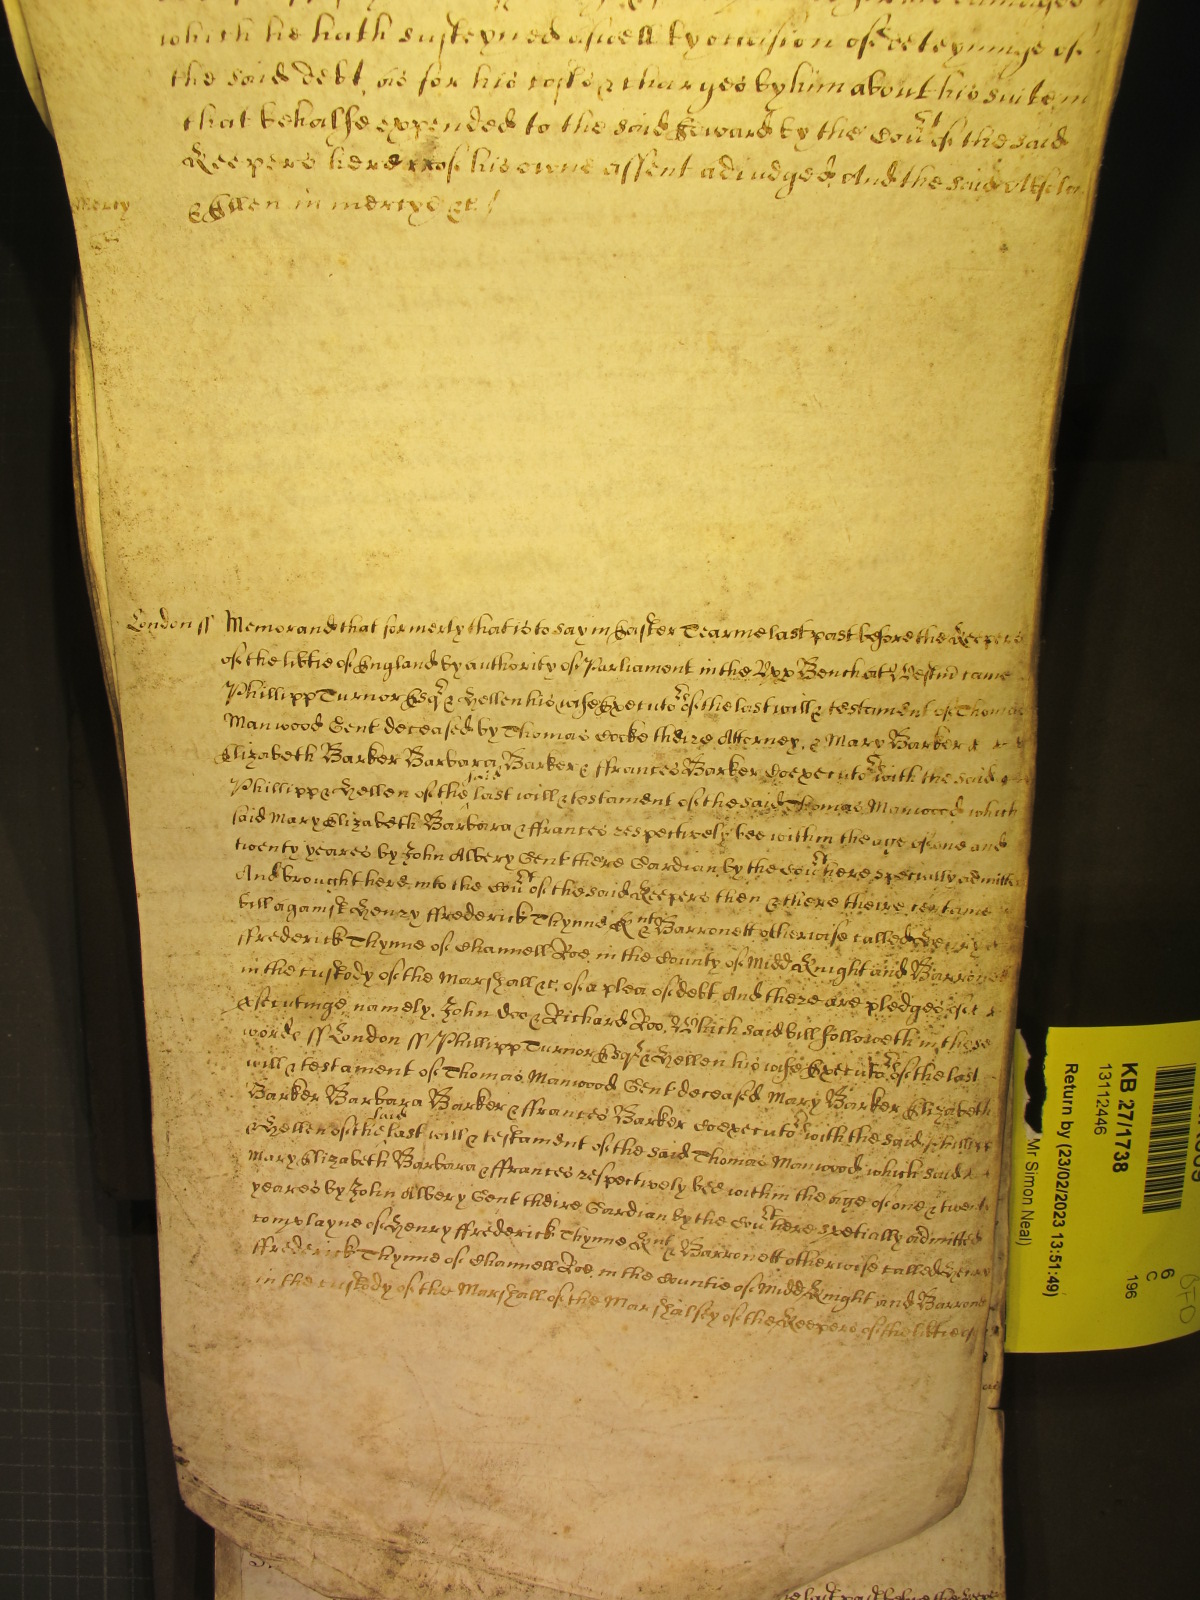 which he hath susteyned aswell by occasion of deteyninge of
the said debt as for his costs & charges by him about his suite in
that behalfe expended to the said Edward by the Cou^rt of the said
Keepers here of his owne assent adiudged And the said
Mercy & Ellen in mercye &c /
London ss Memorand that formerly that is to say in Easter Tearme last past before the Keepers
of the libtie of England by authority of Parliament in the Upp Bench at Westm came
Phillipp Turnor Esq^r & Hellen his wife Executo^rs of the last will & testament of Thomas
Manwood Gent deceased by Thomas Cocke theire Attorney, & Mary Barker
Elizabeth Barker Barbara Barker & ffrances Barker Coexecuto^rs with the said
Phillipp & Hellen of the said last will & testament of the said Thomas Manwood which
said Mary Elizabeth Barbara & ffrances respectively bee within the age of one and
twenty yeares by John Albery Gent there Gardian by the Cou^rt here specially admitted
And brought here into the Cou^rt of the said Keepers then & there theire certaine
bill against Henry ffrederick Thynne K^nt & Barronett otherwise called Henry
ffrederick Thynne of Channell Roe in the County of Midd Knight and Barronett
in the custody of the Marshall &c. of a plea of debt And there are pledges of
prosecutinge namely, John Doo & Richard Roo. Which said bill followeth in these
words ss London ss Phillipp Turnor Esq^r & Hellen his wife Executo^rs of the last
will & testament of Thomas Manwood Gent deceased Mary Barker Elizabeth
Barker Barbara Barker & ffrances Barker Coexecuto^rs with the said Phillipp
& Hellen of the said last will & testament of the said Thomas Manwood which said
Mary Elizabeth Barbara & ffrances respectively bee within the age of one & twenty
yeares by John Albery Gent theire Gardian by the Cou^rt here spetially admitted
complayne of Henry ffrederick Thynne K^nt & Barronett otherwise called Henry
ffrederick Thynne of Channell Roe in the Countie of Midd Knight and Barronett
in the custody of the Marshall of the Marshalsey of the Keepers of the libtie of
KB 27/1738
13112446
Return by (23/02/2023 13:51:49)
Mr Simon Neal)
6
C
196